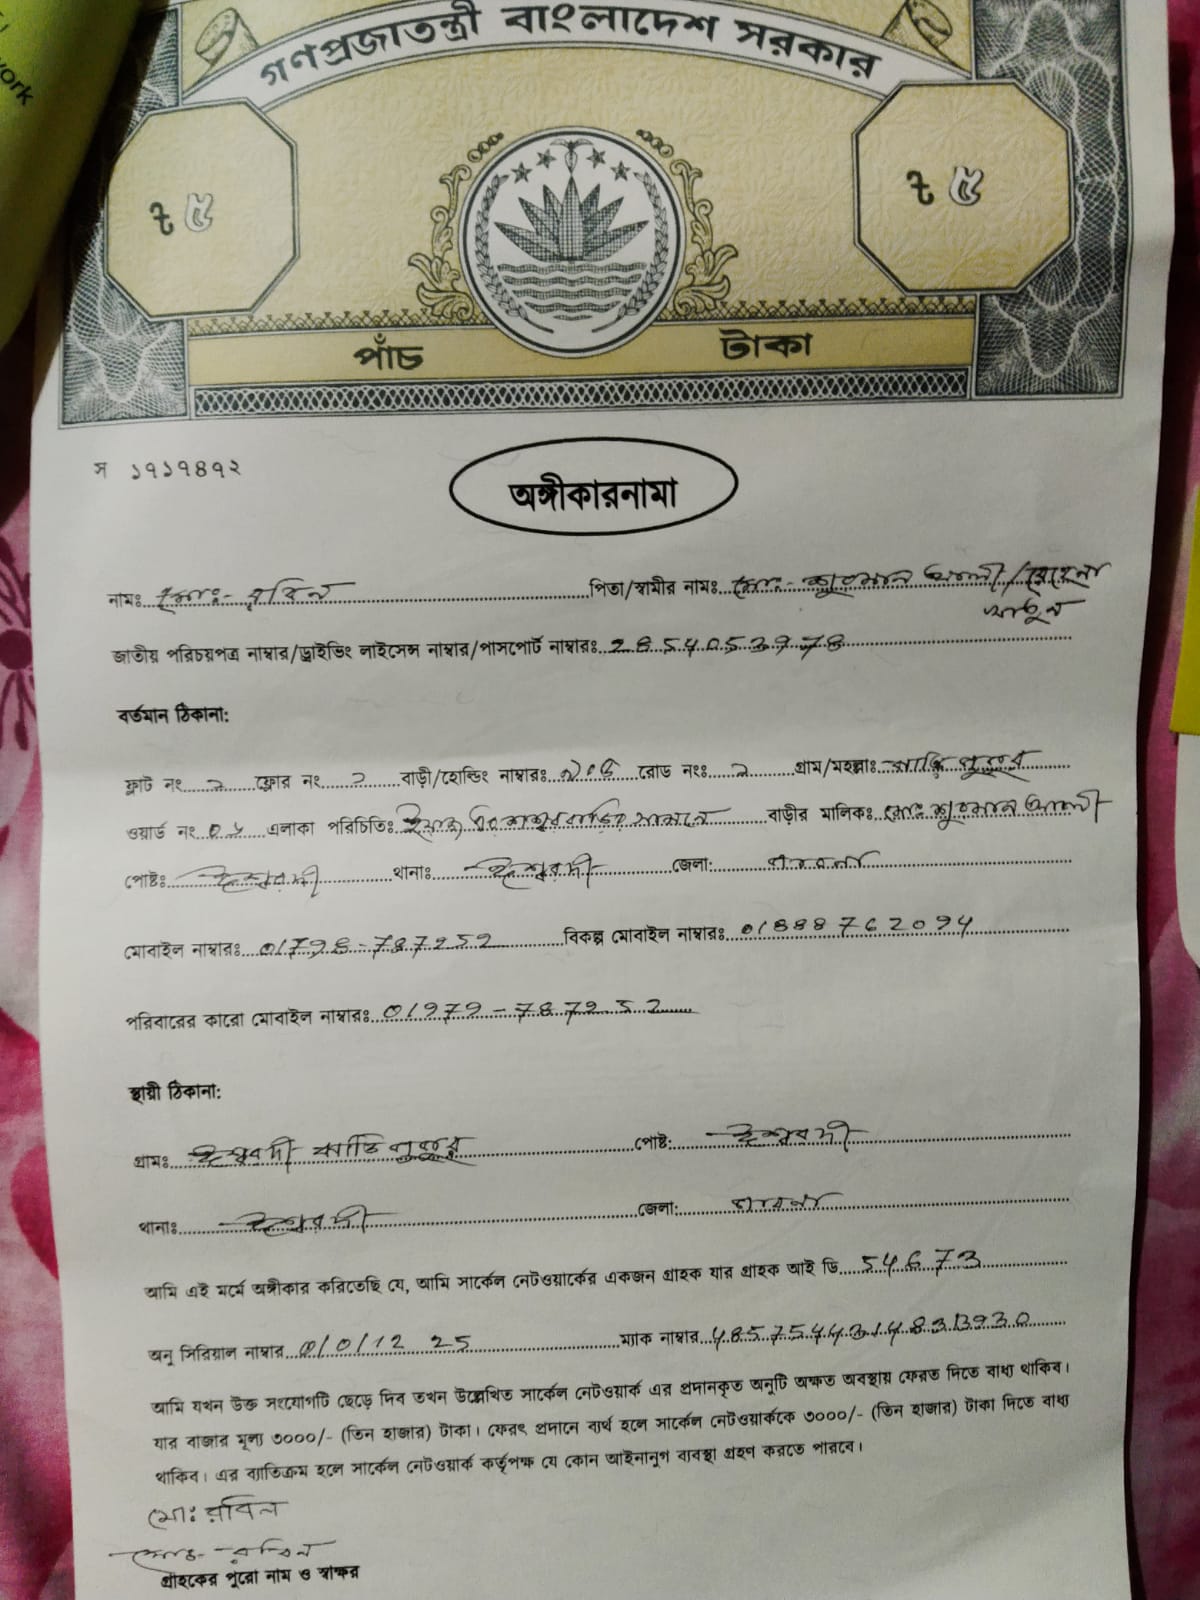 work
গণপ্রজাতন্ত্রী বাংলাদেশ সরকার
৳ ৫ ৳ ৫
পাঁচ টাকা
স ১৭১৭৪৭২
অঙ্গীকারনামা
নামঃ মোঃ- রবিন পিতা/স্বামীর নামঃ মোঃ- আলী/
জাতীয় পরিচয়পত্র নাম্বার/ড্রাইভিং লাইসেন্স নাম্বার/পাসপোর্ট নাম্বারঃ 2854053978
বর্তমান ঠিকানা:
ফ্লাট নং ফ্লোর নং বাড়ী/হোল্ডিং নাম্বারঃ রোড নংঃ গ্রাম/মহল্লাঃ
ওয়ার্ড নং এলাকা পরিচিতিঃ সামনে বাড়ীর মালিকঃ মোঃ আলী
পোষ্টঃ ঈশ্বরদী থানাঃ ঈশ্বরদী জেলা: পাবনা
মোবাইল নাম্বারঃ 01798-787252 বিকল্প মোবাইল নাম্বারঃ 01888762094
পরিবারের কারো মোবাইল নাম্বারঃ 01979-787252
স্থায়ী ঠিকানা:
গ্রামঃ ঈশ্বরদী পোষ্ট: ঈশ্বরদী
থানাঃ ঈশ্বরদী জেলা: পাবনা
আমি এই মর্মে অঙ্গীকার করিতেছি যে, আমি সার্কেল নেটওয়ার্কের একজন গ্রাহক যার গ্রাহক আই ডি 54673
অনু সিরিয়াল নাম্বার 0/0/12 25 ম্যাক নাম্বার
আমি যখন উক্ত সংযোগটি ছেড়ে দিব তখন উল্লেখিত সার্কেল নেটওয়ার্ক এর প্রদানকৃত অনুটি অক্ষত অবস্থায় ফেরত দিতে বাধ্য থাকিব।
যার বাজার মূল্য ৩০০০/- (তিন হাজার) টাকা। ফেরৎ প্রদানে ব্যর্থ হলে সার্কেল নেটওয়ার্ককে ৩০০০/- (তিন হাজার) টাকা দিতে বাধ্য
থাকিব। এর ব্যাতিক্রম হলে সার্কেল নেটওয়ার্ক কর্তৃপক্ষ যে কোন আইনানুগ ব্যবস্থা গ্রহণ করতে পারবে।
মোঃ রবিন
মোঃ- রবিন
গ্রাহকের পুরো নাম ও স্বাক্ষর